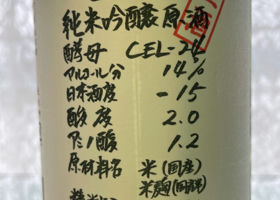 純米吟醸原酒
酵母 CEL-24
アルコール分 14%
日本酒度 -15
酸度 2.0
アミノ酸 1.2
原材料名 米(国産)
米麹(国産米)